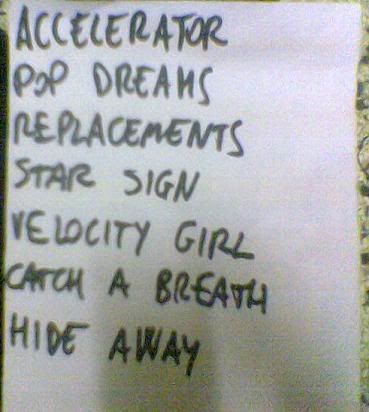 ACCELERATOR
POP DREAMS
REPLACEMENTS
STAR SIGN
VELOCITY GIRL
CATCH A BREATH
HIDE AWAY